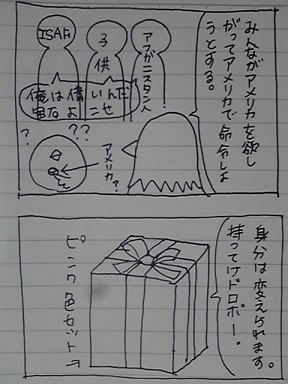 みんながアメリカを欲し
がってアメリカで命令しよ
うとする。
アフガニスタン人
子供
ISAF
俺は僕いんだ
よこせ
??
?
アメリカ?
身分は変えられます。
持ってけドロボー。
ピンク色セット→